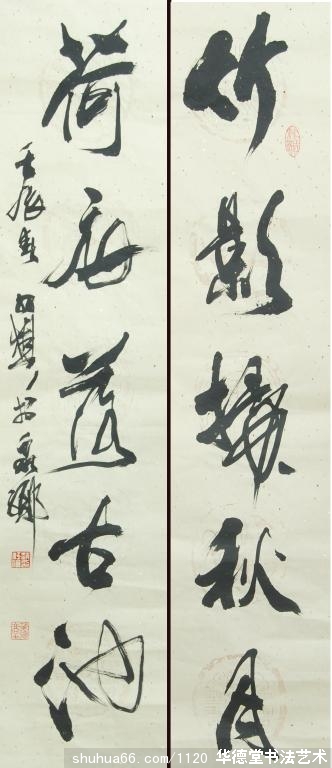 竹影掃秋月
荷衣落古池
壬辰
shuhua66.com/1120 华德堂书法艺术